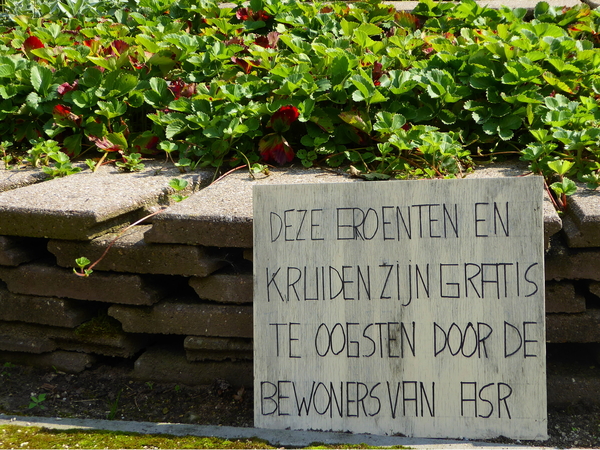 DEZE GROENTEN EN
KRUIDEN ZIJN GRATIS
TE OOGSTEN DOOR DE
BEWONERS VAN ASR